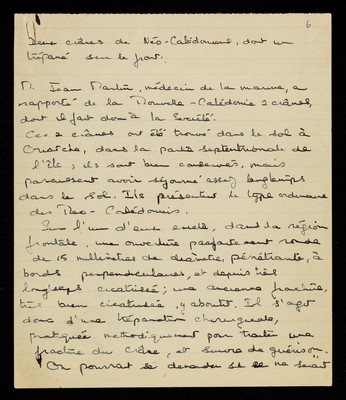 6
Deux crânes de Néo-Calédoniens, dont un
trépané sur le front.
M. Jean Martin, médecin de la marine, a
rapporté de la Nouvelle-Calédonie 2 crânes,
dont il fait don à la Société.
Ces 2 crânes ont été trouvé dans le sol à
dans la partie septentrionale de
l'île ; ils sont bien conservés, mais
paraissent avoir séjourné assez longtemps
dans le sol. Ils présentent le type ordinaire
des Néo-Calédoniens.
Sur l'un d'eux existe, dans la région
frontale, une ouverture parfaitement ronde
de 15 millimètres de diamètre, pénétrante, à
bords perpendiculaires, et depuis très
longtemps cicatrisée ; une ancienne fracture,
très bien cicatrisée, y aboutit. Il s'agit
donc d'une trépanation chirurgicale,
pratiquée méthodiquement pour traiter une
fracture du crâne, et suivie de guérison.
On pourrait se demander si ce ne serait